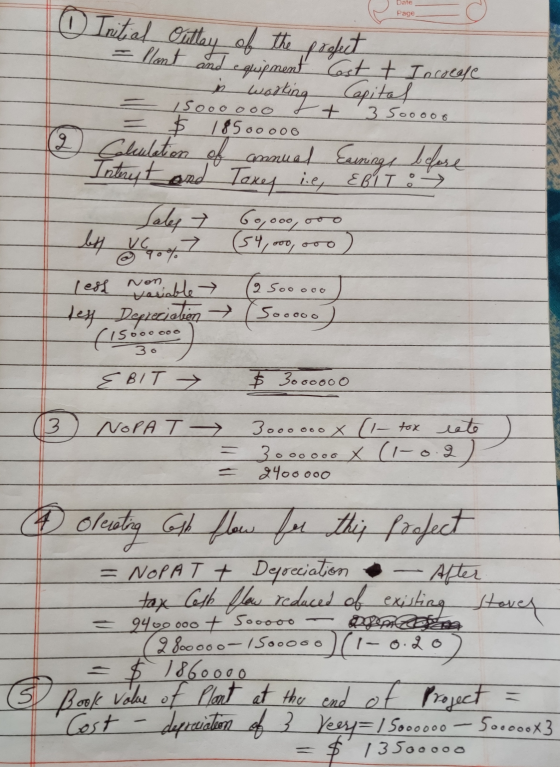 Date
Page
① Initial Outlay of the project
= Plant and equipment Cost + Increase
in working Capital
= 15000000 + 3500000
= $ 18500000
② Calculation of annual Earnings before
Interest and Taxes i.e, EBIT :→
Sales → 60,000,000
less VC → (54,000,000)
@ 90%
less Non Variable → (2500000)
less Depreciation → (500000)
(15000000/30)
EBIT → $ 3000000
③ NOPAT → 3000000 x (1- tax rate)
= 3000000 x (1-0.2)
= 2400000
④ Operating Cash flow for this Project
= NOPAT + Depreciation — After
tax Cash flow reduced of existing Stover
= 2400000 + 500000 —
(2800000-1500000)(1-0.20)
= $ 1860000
⑤ Book Value of Plant at the end of Project =
Cost - depreciation of 3 Years=15000000-500000x3
= $ 13500000